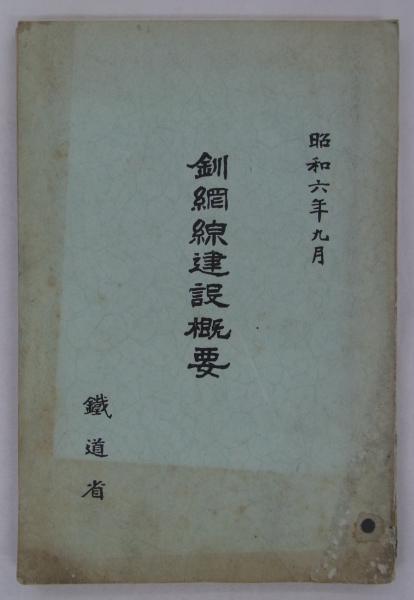 昭和六年九月
釧網線建設概要
鐵道省